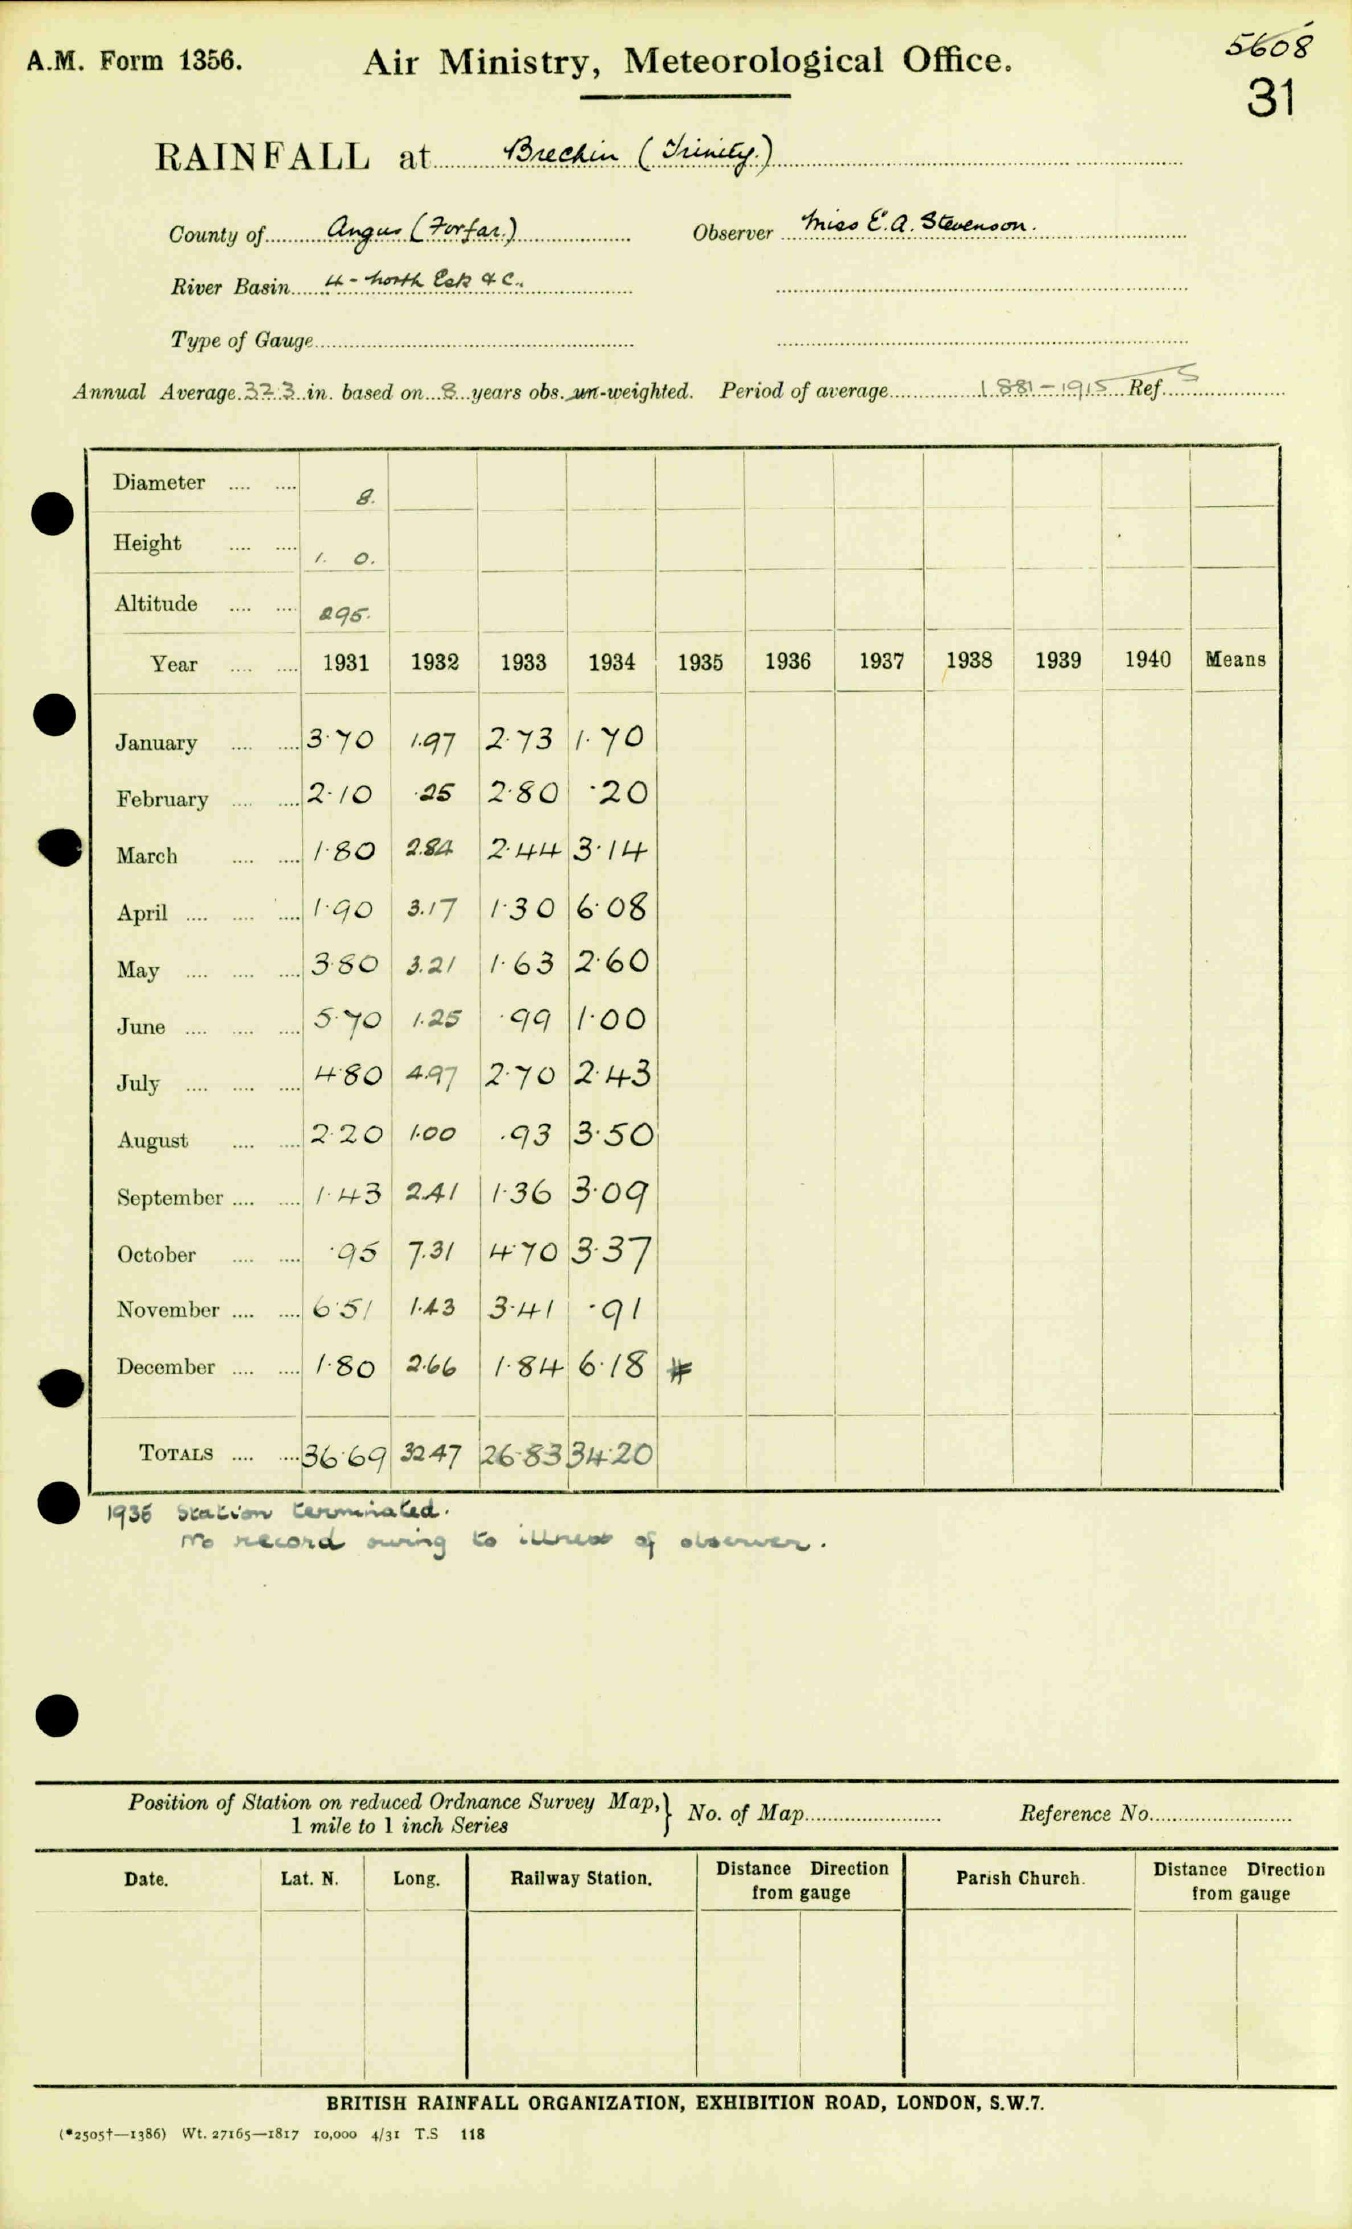 5608
A.M. Form 1356. Air Ministry, Meteorological Office.
31
RAINFALL at Brechin (Trinity.)
County of Angus (Forfar.) Observer Miss E. A. Stevenson.
River Basin 4 - North Esk &c.
Type of Gauge
Annual Average 32.3 in. based on 8 years obs. un-weighted. Period of average 1881-1915 Ref. S
Diameter 8.
Height 1. 0.
Altitude 295.
Year 1931 1932 1933 1934 1935 1936 1937 1938 1939 1940 Means
January 3.70 1.97 2.73 1.70
February 2.10 .25 2.80 .20
March 1.80 2.84 2.44 3.14
April 1.90 3.17 1.30 6.08
May 3.80 3.21 1.63 2.60
June 5.70 1.25 .99 1.00
July 4.80 4.97 2.70 2.43
August 2.20 1.00 .93 3.50
September 1.43 2.41 1.36 3.09
October .95 7.31 4.70 3.37
November 6.51 1.43 3.41 .91
December 1.80 2.66 1.84 6.18 #
TOTALS 36.69 32.47 26.83 34.20
1935 Station terminated.
No record owing to illness of observer.
Position of Station on reduced Ordnance Survey Map, } No. of Map Reference No.
1 mile to 1 inch Series
Date. Lat. N. Long. Railway Station. Distance Direction from gauge Parish Church. Distance Direction from gauge
BRITISH RAINFALL ORGANIZATION, EXHIBITION ROAD, LONDON, S.W.7.
(*2505†—1386) Wt. 27165—1817 10,000 4/31 T.S 118